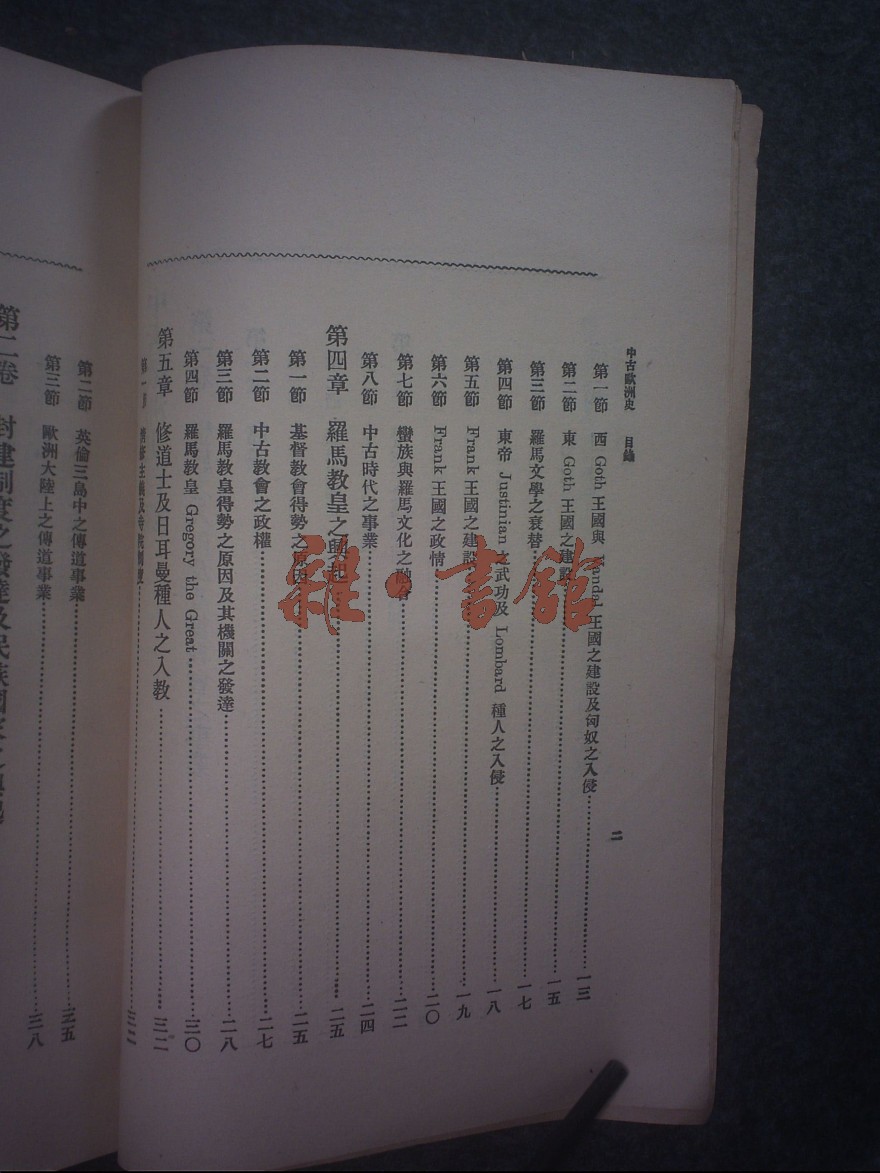 中古歐洲史 目錄
二
第一節 西 Goth 王國與 Vandal 王國之建設及匈奴之入侵 一三
第二節 東 Goth 王國之建設 一五
第三節 羅馬文學之衰替 一七
第四節 東帝 Justinian 之武功及 Lombard 種人之入侵 一八
第五節 Frank 王國之建設 一九
第六節 Frank 王國之政情 二〇
第七節 蠻族與羅馬文化之融合 二二
第八節 中古時代之事業 二四
第四章 羅馬教皇之興起 二五
第一節 基督教會得勢之原因 二五
第二節 中古教會之政權 二七
第三節 羅馬教皇得勢之原因及其機關之發達 二八
第四節 羅馬教皇 Gregory the Great 三〇
第五章 修道士及日耳曼種人之入教 三二
第一節 三二
第二節 英倫三島中之傳道事業 三五
第三節 歐洲大陸上之傳道事業 三八
第二卷 封建制度之發達及民族國家之興起
雜·書館